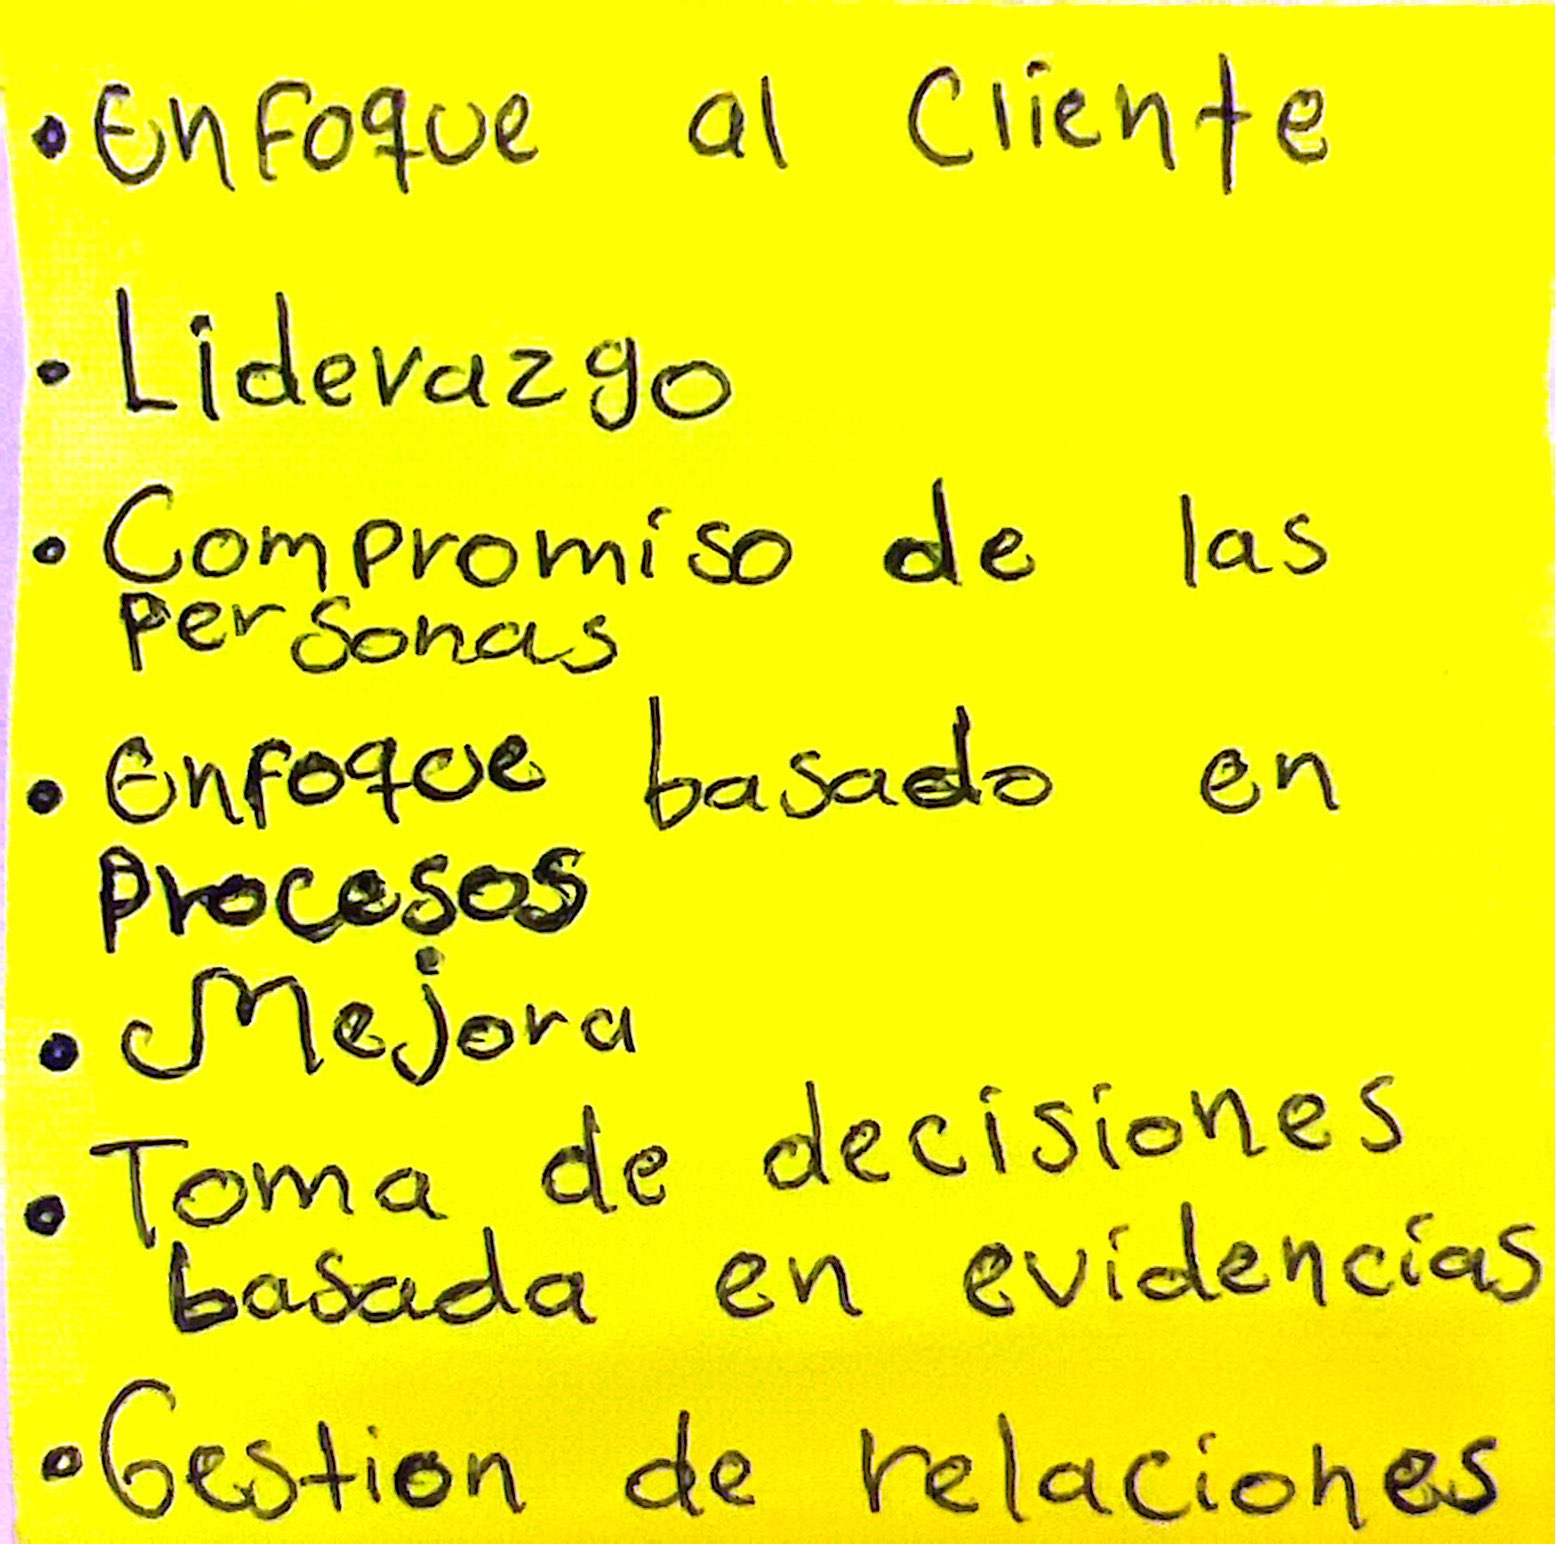 • Enfoque al Cliente
• Liderazgo
• Compromiso de las
personas
• Enfoque basado en
procesos
• Mejora
• Toma de decisiones
basada en evidencias
• Gestion de relaciones